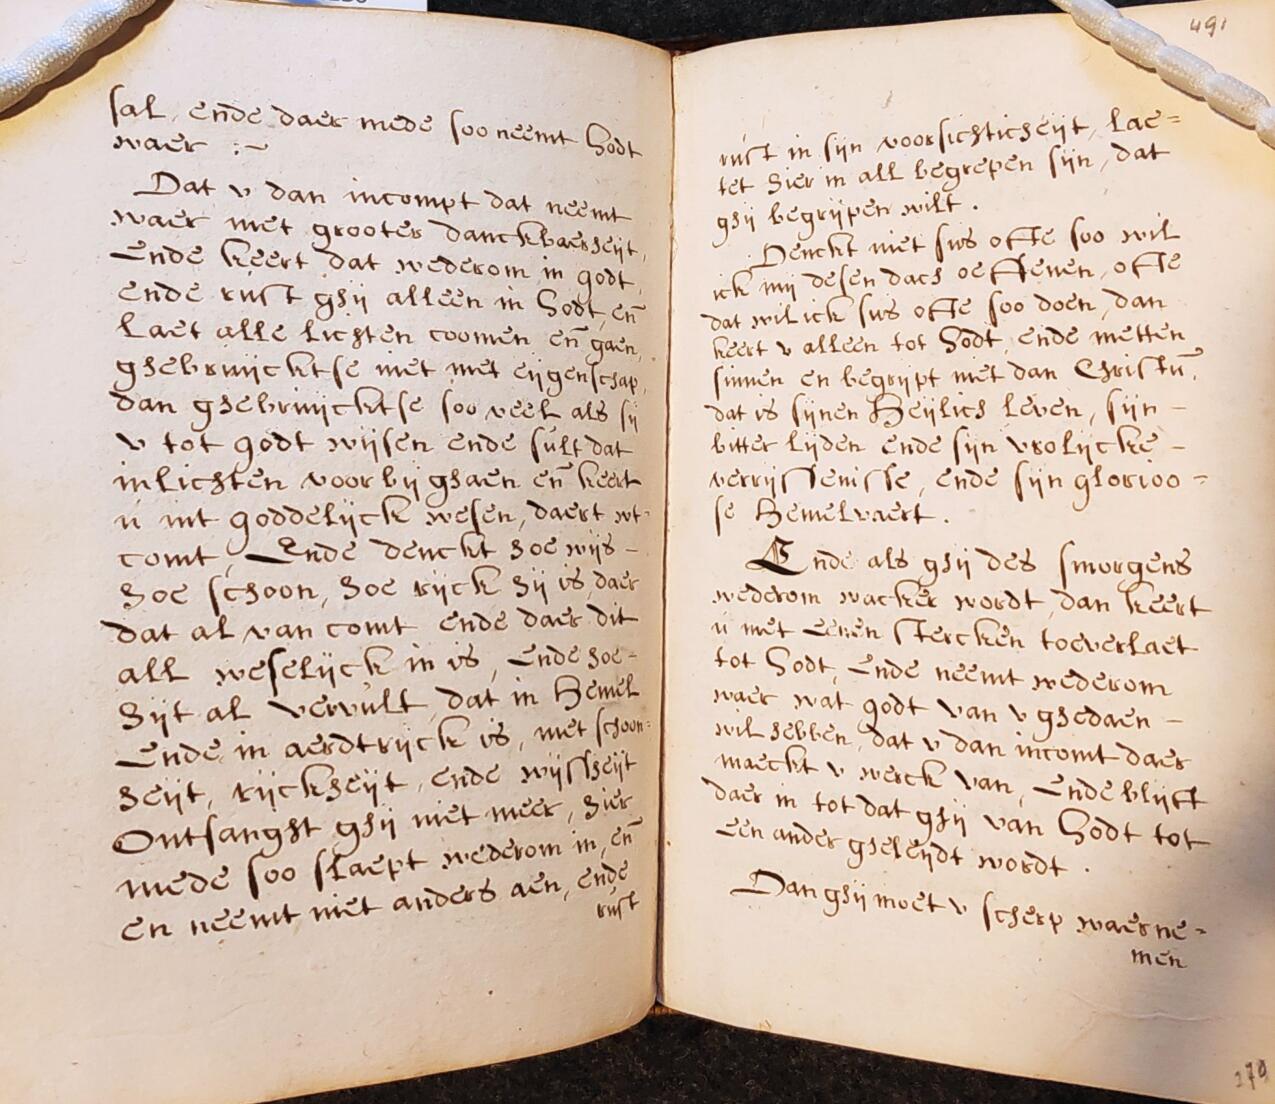 sal, ende daer mede soo neemt Godt
waer :~
Dat v dan incompt dat neemt
waer met grooter danckbaerheijt,
Ende keert dat wederom in godt,
ende rust ghij alleen in Godt, en̄
laet alle lichten coomen en̄ gaen,
ghebruijcktse niet met eijgenschap,
dan ghebruijcktse soo veel als sij
v tot godt wijsen ende sult dat
inlichten voorbij ghaen en̄ keert
u int goddelijck wesen, daert wt-
comt, Ende denckt hoe wijs -
hoe schoon, hoe rijck hij is, daer
dat al van comt ende daer dit
all weselijck in is, Ende hoe -
hijt al vervult dat in Hemel
Ende in aerdtrijck is, met schoon=
heijt, rijckheijt, ende wijsheijt
Ontfanght ghij niet meer, hier
mede soo slaept wederom in, en̄
en neemt niet anders aen, ende
rust
491
rust in sijn voorsichticheijt, lae=
tet hier in all begrepen sijn, dat
ghij begrijpen wilt.
Denckt niet sus ofte soo wil
ick mij desen dach oeffenen, ofte
dat wil ick sus ofte soo doen, dan
keert v alleen tot Godt, ende metten
sinnen en begrijpt niet dan Christū,
dat is sijnen Heijlich leven, sijn -
bitter lijden ende sijn vrolijcke -
verrijssenisse, ende sijn glorioo =
se Hemelvaert.
Ende als ghij des smorgens
wederom wacker wordt, dan keert
u met Eenen stercken toeverlaet
tot Godt, Ende neemt wederom
waer wat godt van v ghedaen -
wil hebben, dat v dan incomt daer
maeckt v werck van, Ende blijft
daer in tot dat ghij van Godt tot
Een ander gheleijdt wordt.
Dan ghij moet v scherp waerne=
men
270